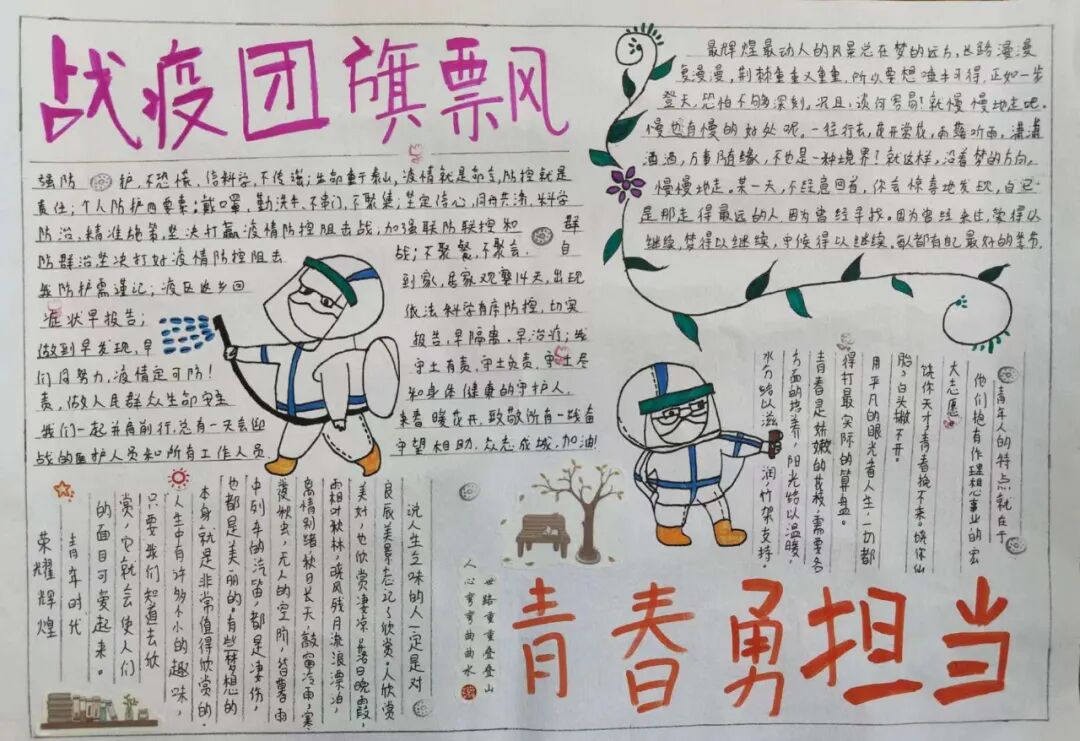 战疫团旗飘
强防护,不恐慌,信科学,不传谣;生命重于泰山,疫情就是命令,防控就是
责任;个人防护四要素:戴口罩,勤洗手、不串门、不聚集;坚定信心,同舟共济,科学
防治、精准施策,坚决打赢疫情防控阻击战,加强联防联控和群
防群治坚决打好疫情防控阻击战;不聚餐,不聚会.自
我防护需谨记;疫区返乡回到家,居家观察14天,出现
症状早报告;依法科学有序防控,切实
做到早发现,早报告,早隔离.早治疗;我
们同努力,疫情定可防!守土有责,守土负责,守土尽
责,做人民群众生命安全和身体健康的守护人.
我们一起并肩前行,总有一天会迎来春暖花开,致敬所有一线奋
战的医护人员和所有工作人员守望相助.众志成城,加油!
最辉煌最动人的风景总在梦的远方,长路漫漫
复漫漫,荆棘重重又重重.所以要想唾手可得,正如一步
登天,恐怕不够深刻.况且,谈何容易!就慢慢地走吧.
慢也有慢的好处呢.一往行去,花开赏花,雨落听雨,潇潇
洒洒,万事随缘,不也是一种境界!就这样,沿着梦的方向,
慢慢地走.某一天,不经意回首,你会惊喜地发现,自己
是那走得最远的人.因为曾经寻找.因为曾经
继续,梦得以继续.都有自己最好的季节.
青年人的特点就在于
他们抱有作理想事业的宏
大志愿。
饶你天才,青春换不来。饶你
胎,白头撇不开。
用平凡的眼光看人生,一切都
得打最实际的算盘。
青春是娇嫩的花枝,需要各
方面的培养,阳光给以温暖,
水分给以滋润,竹架支持。
世路重重叠叠山
人心弯弯曲曲水
说人生之味的人一定是对
良辰美景忘记了欣赏。人欣赏
美好,也欣赏凄凉。落日晚霞,
霜相叶秋林,晓风残月流浪漂泊,
离情别绪,秋日长天,敲窗冷雨,寒
夜秋虫,无人的空阶,皆暮雨
中列车的汽笛,都是凄伤,
也都是美丽的。有些梦想的
本身就是非常值得欣赏的。
人生中有许多小小的趣味,
只要我们知道去欣
赏,它就会使人们
的面目可爱起来。
青年时代
荣耀辉煌
青春勇担当